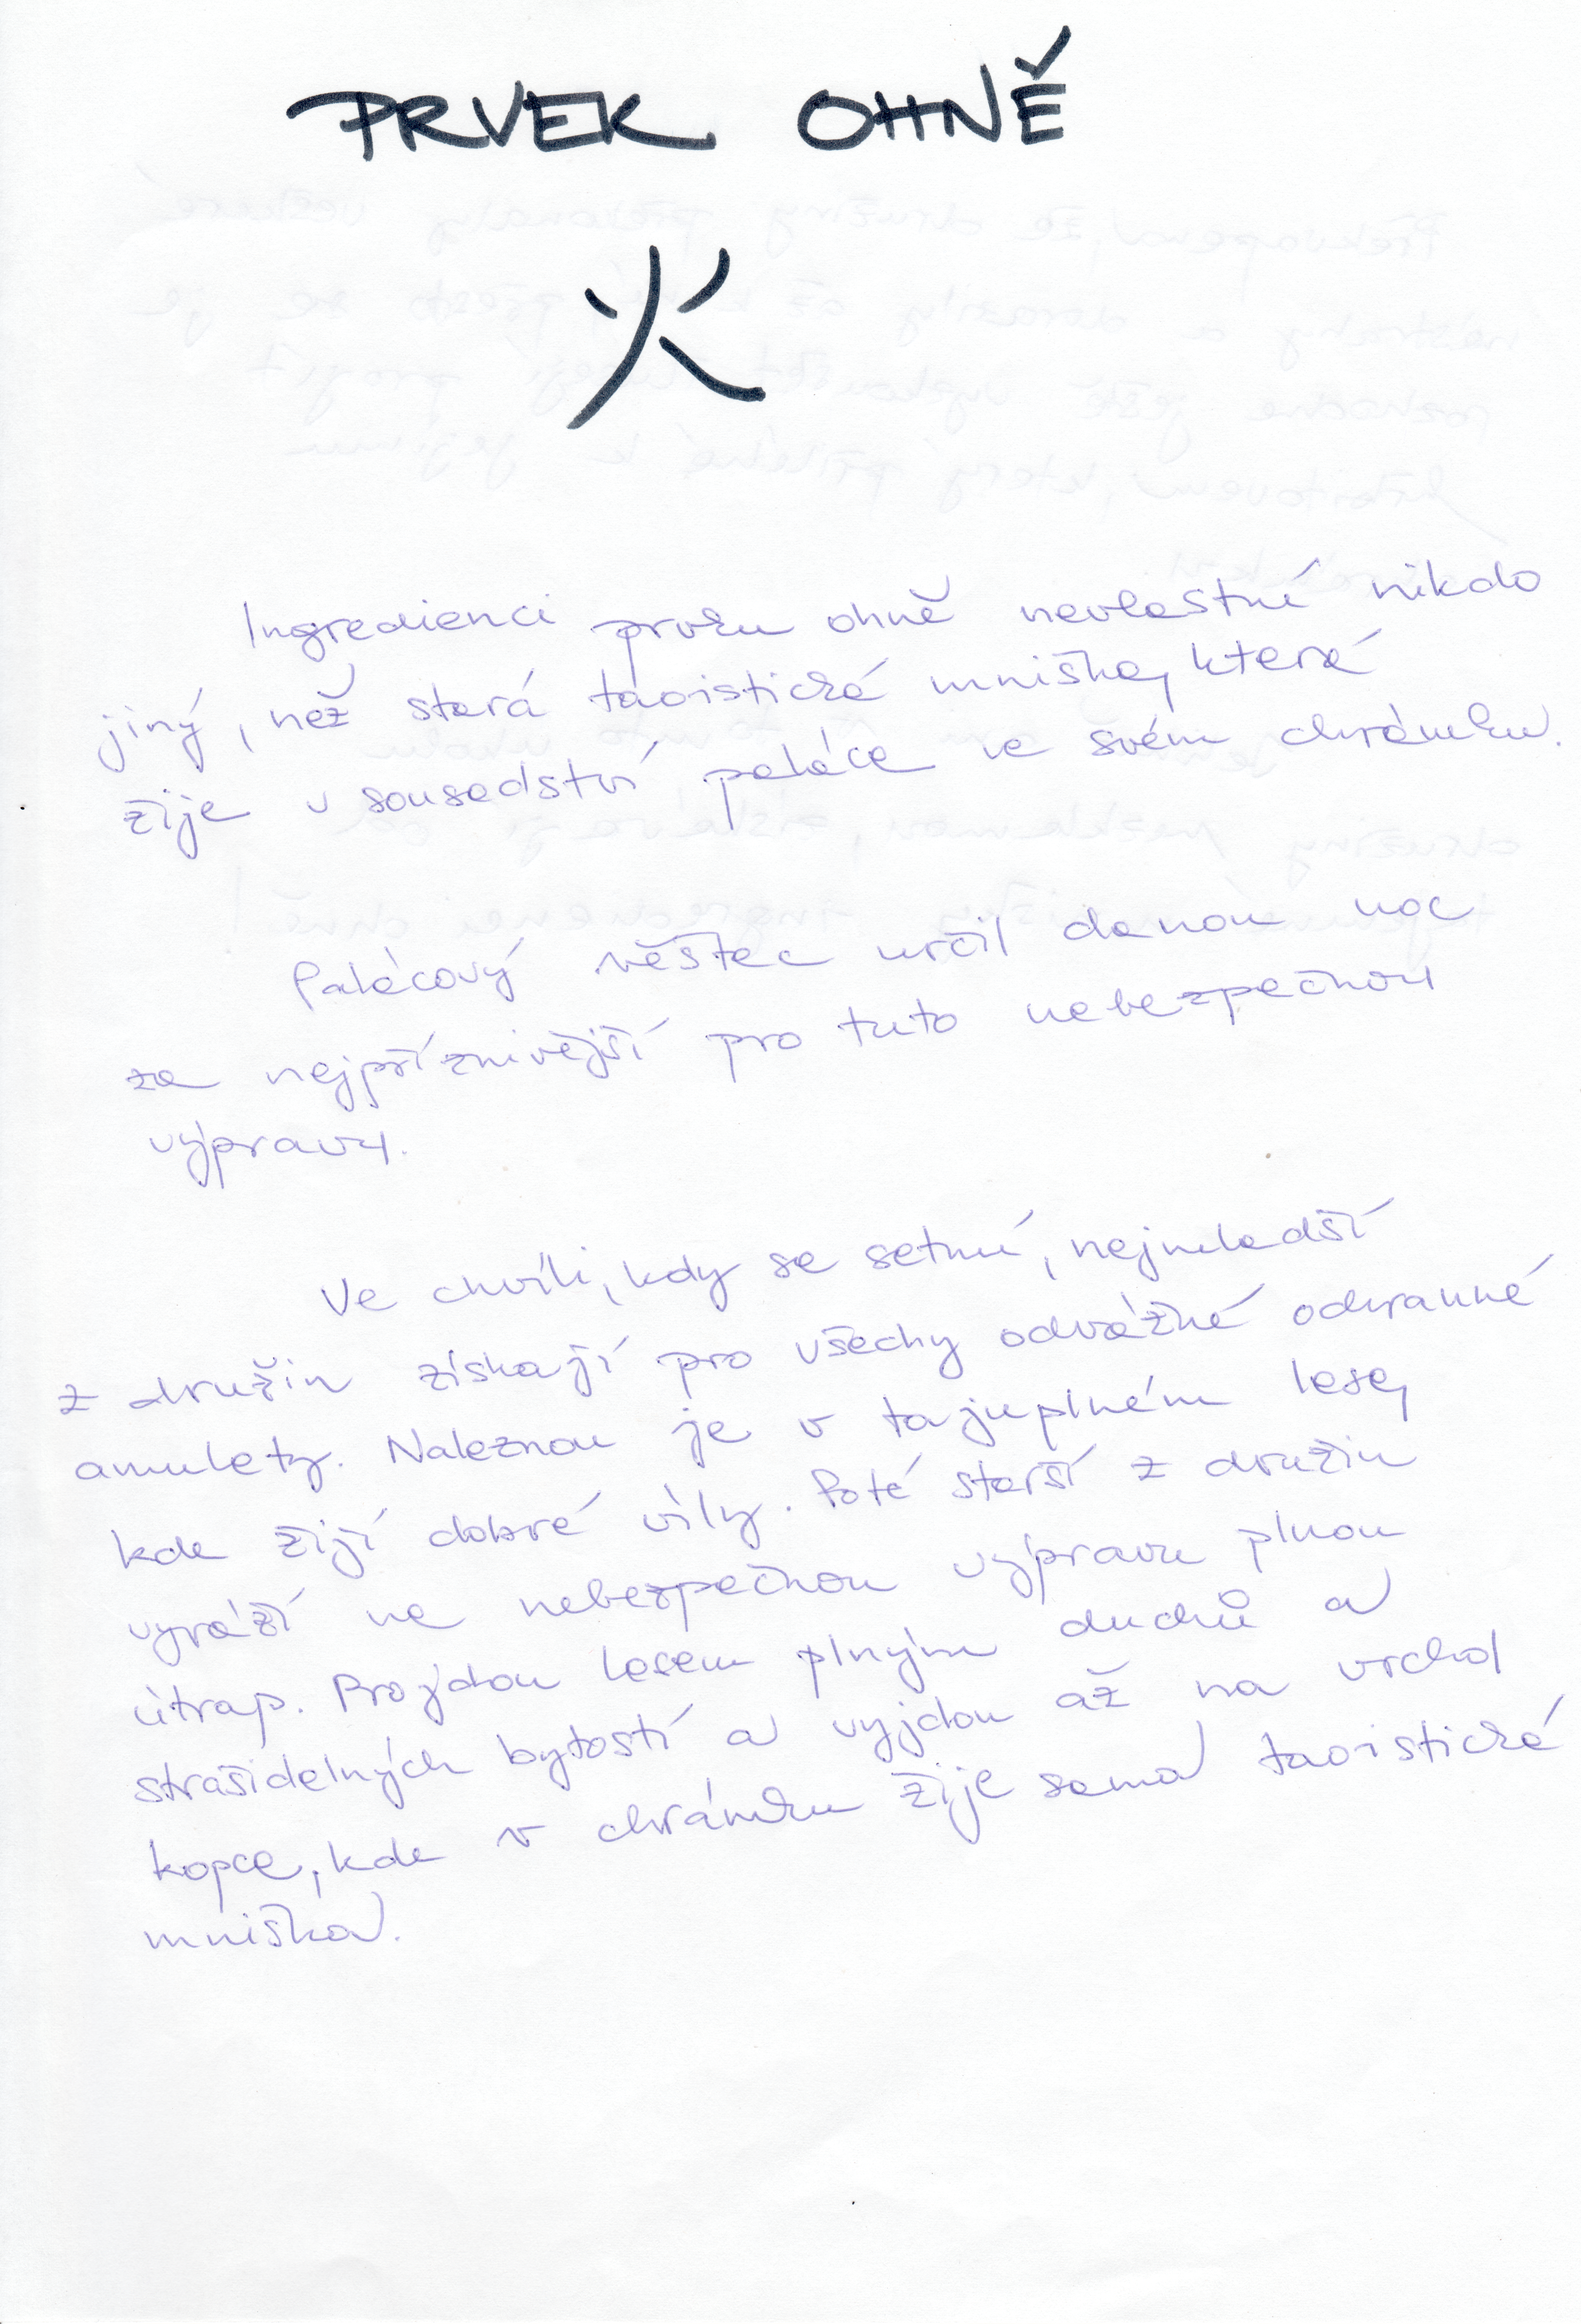 PRVEK OHNĚ
火
Ingredienci prvku ohně nevlastní nikdo
jiný, než stará taoistická mniška, která
žije v sousedství paláce ve svém chrámku.
Palácový věštec určil danou noc
za nejpříznivější pro tuto nebezpečnou
výpravu.
Ve chvíli, kdy se setmí, nejmladší
z družin získají pro všechy odvážné ochranné
amulety. Naleznou je v tajuplném lese,
kde žijí dobré víly. Poté starší z družin
vyráží na nebezpečnou výpravu plnou
útrap. Projdou lesem plným duchů a
strašidelných bytostí a vyjdou až na vrchol
kopce, kde v chrámku žije sama taoistická
mniška.